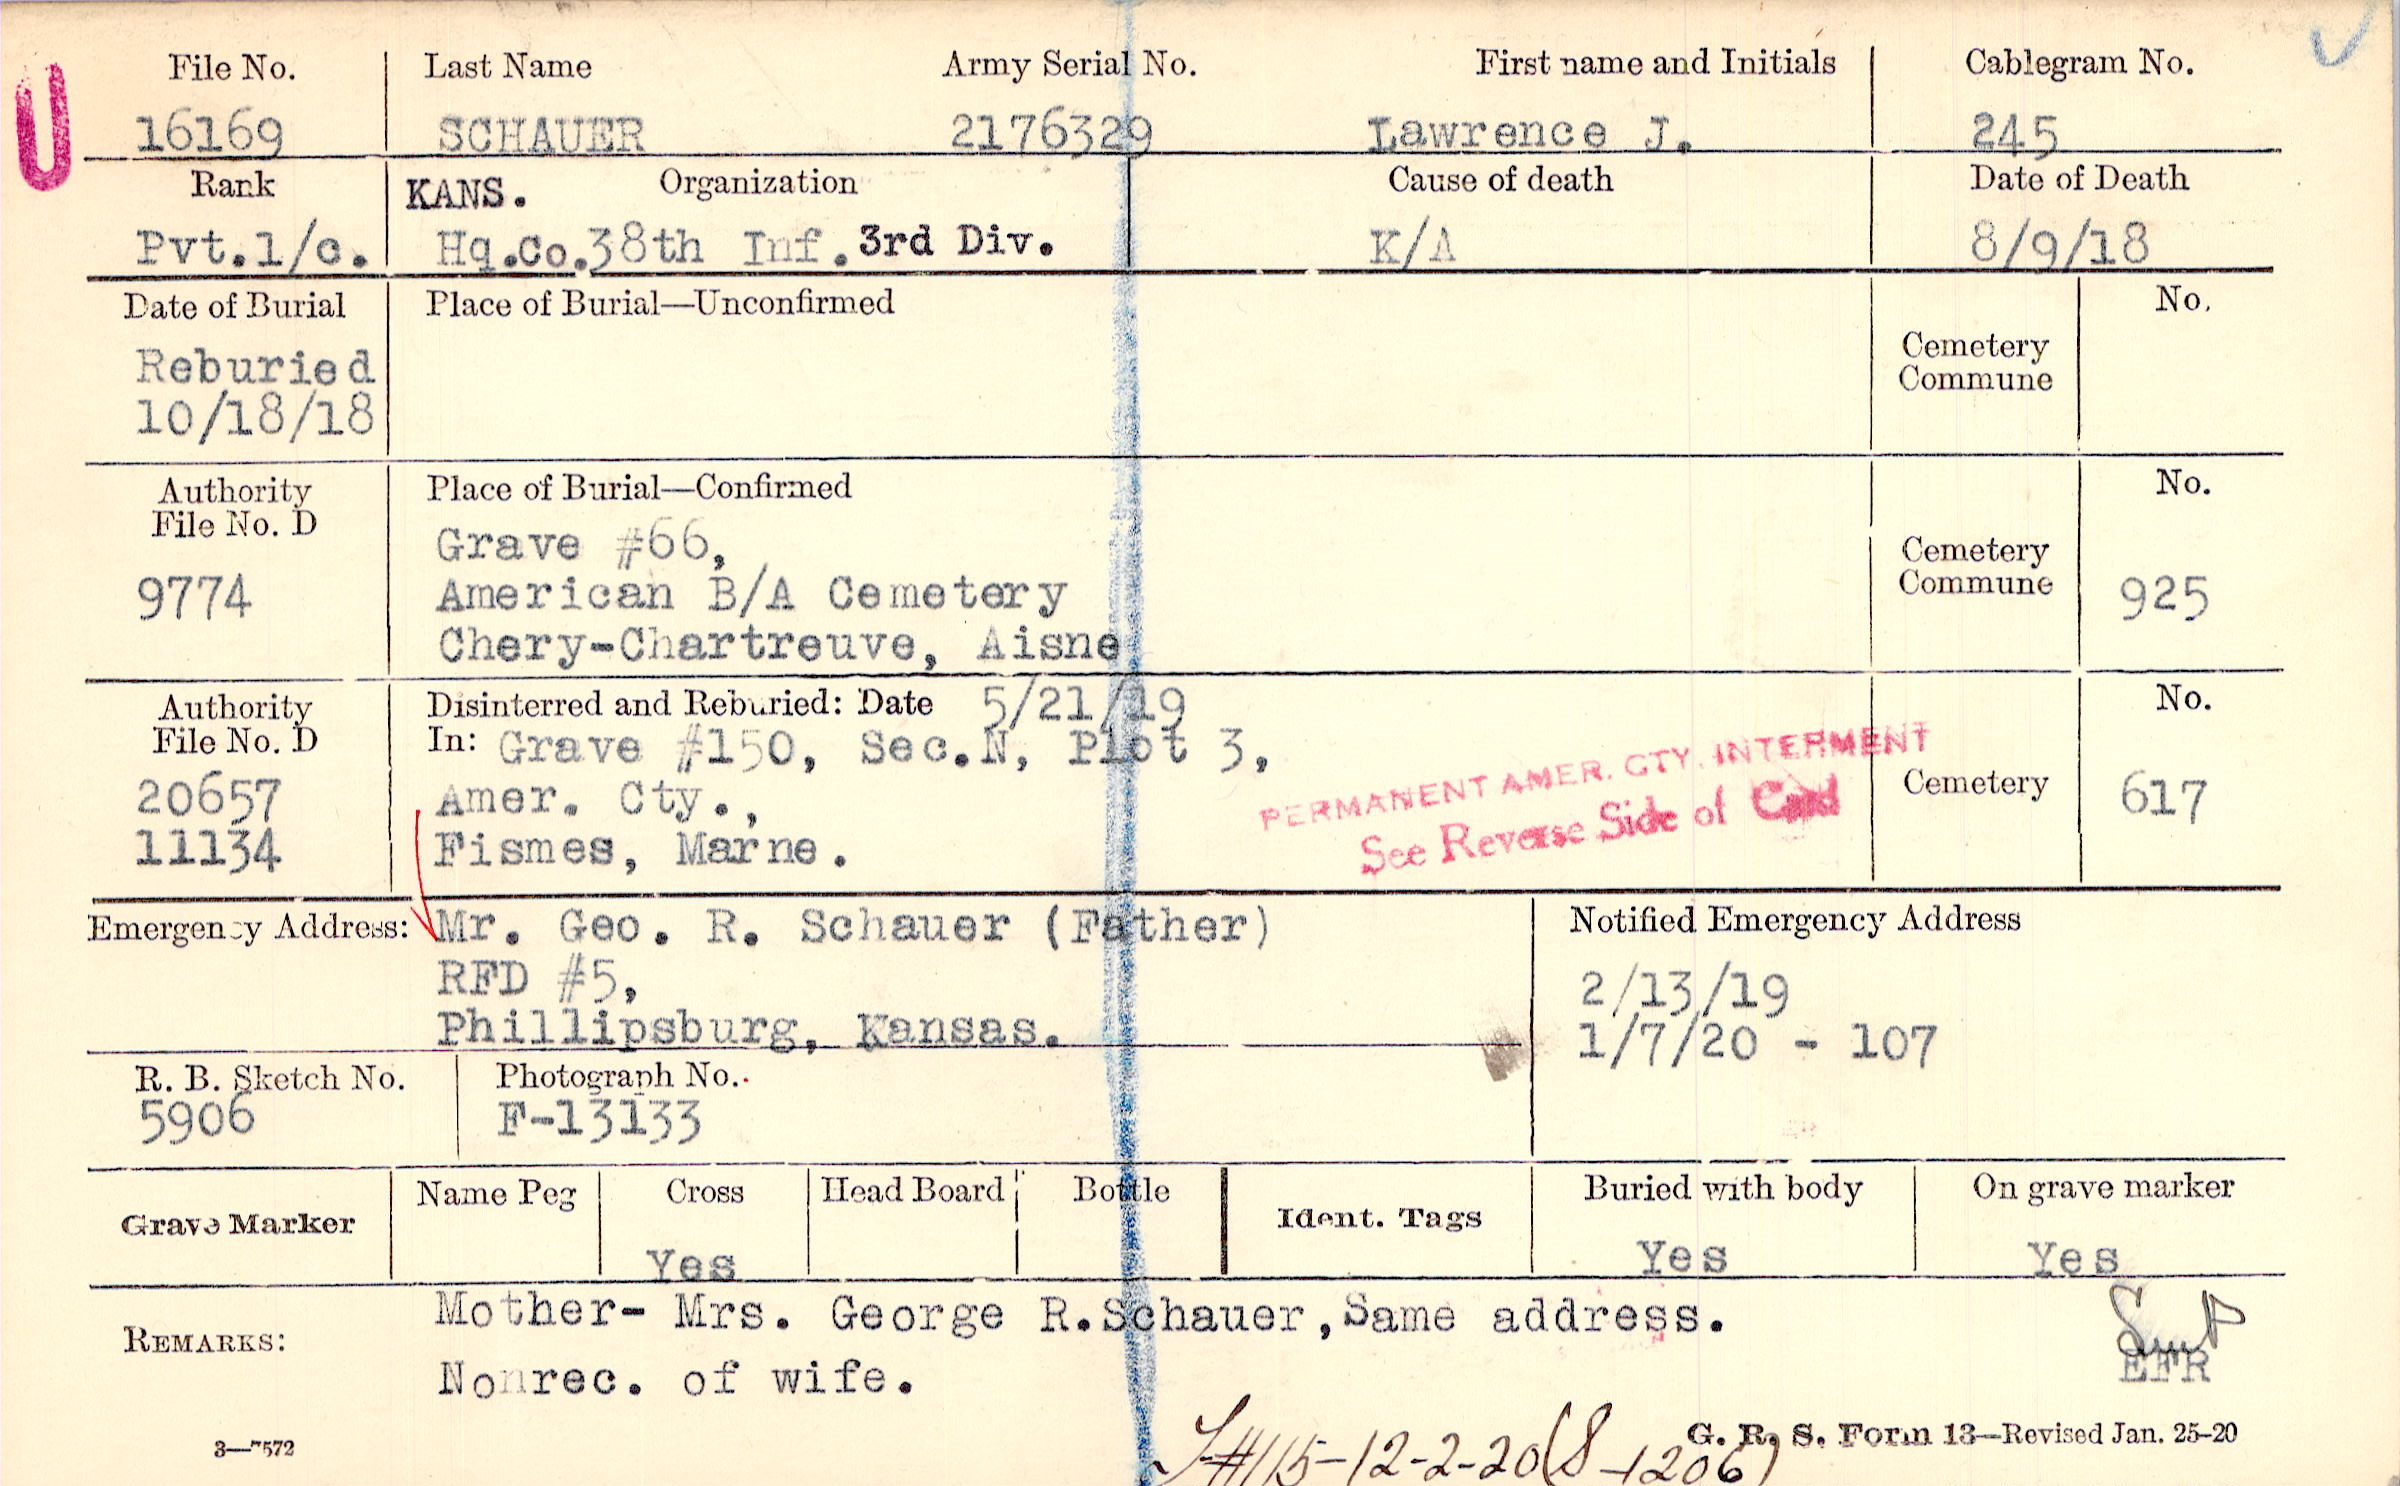 U
File No. Last Name Army Serial No. First name and Initials Cablegram No.
16169 SCHAUER 2176329 Lawrence J. 245
Rank KANS. Organization Cause of death Date of Death
Pvt.1/c. Hq.Co.38th Inf.3rd Div. K/A 8/9/18
Date of Burial Place of Burial—Unconfirmed No.
Reburied
10/18/18
Cemetery
Commune
Authority
File No. D
9774
Place of Burial—Confirmed
Grave #66,
American B/A Cemetery
Chery-Chartreuve, Aisne
Cemetery
Commune
No.
925
Authority
File No. D
20657
11134
Disinterred and Reburied: Date 5/21/19
In: Grave #150, Sec.N, Plot 3,
Amer. Cty.,
Fismes, Marne.
PERMANENT AMER. CTY. INTERMENT
See Reverse Side of Card
Cemetery
No.
617
Emergency Address: Mr. Geo. R. Schauer (Father)
RFD #5,
Phillipsburg, Kansas.
Notified Emergency Address
2/13/19
1/7/20 - 107
R. B. Sketch No. Photograph No.
5906 F-13133
Grave Marker
Name Peg Cross Head Board Bottle
Yes
Ident. Tags
Buried with body On grave marker
Yes Yes
REMARKS:
Mother- Mrs. George R.Schauer,Same address.
Nonrec. of wife.
EFR
3—7572
#115-12-2-20(S-1206)
G. R. S. Form 13—Revised Jan. 25-20